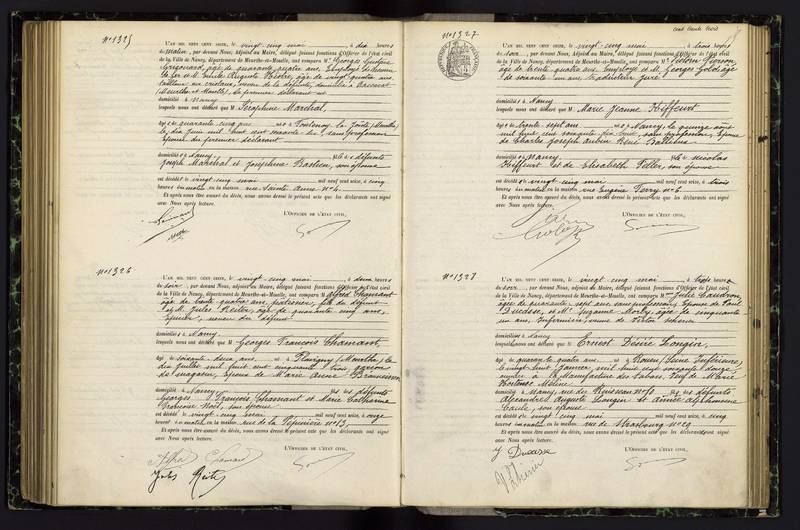 N° 1325
L'AN MIL NEUF CENT SEIZE, le vingt-cinq mai à dix heures
du matin, par devant Nous, Adjoint au Maire, délégué faisant fonctions d'Officier de l'état civil
de la Ville de Nancy, département de Meurthe-et-Moselle, ont comparu M. Georges Gustave
âgé de quarante quatre ans, Employé de chemin
de fer et Auguste âgé de vingt quatre ans
domicilié à Baccarat
(Meurthe et Moselle), le premier déclarant est
domicilié à Nancy
lesquels nous ont déclaré que M. Séraphine Marchal,
âgée de quarante cinq ans né à Fontenoy la Joûte (Meurthe)
le dix juin mil huit cent soixante dix sans profession
Épouse du premier déclarant
domiciliée à Nancy fille de défunts
Joseph Marchal et Joséphine Bastien, son épouse
est décédée le vingt-cinq mai mil neuf cent seize, à cinq
heures du matin en la maison rue Sainte Anne n° 4.
Et après nous être assuré du décès, nous avons dressé le présent acte que les déclarants ont signé
avec Nous après lecture.
L'OFFICIER DE L'ÉTAT CIVIL,
N° 1326
L'AN MIL NEUF CENT SEIZE, le vingt-cinq mai à deux heures
du soir, par devant Nous, Adjoint au Maire, délégué faisant fonctions d'Officier de l'état civil
de la Ville de Nancy, département de Meurthe-et-Moselle, ont comparu M. Alfred Chamant
âgé de trente quatre ans, fils du défunt
et M. Jules âgé de quarante cinq ans,
neveu du défunt
domiciliés à Nancy
lesquels nous ont déclaré que M. Georges François Chamant
âgé de soixante deux ans né à Flavigny (Meurthe) le
dix juillet mil huit cent cinquante trois garçon
de magasin, Époux de Marie Anne
domicilié à Nancy fils de défunts
Georges François Chamant et Marie Catherine
Noël, son épouse
est décédé le vingt-cinq mai mil neuf cent seize, à onze
heures du matin en la maison rue de la Pépinière n° 13
Et après nous être assuré du décès, nous avons dressé le présent acte que les déclarants ont signé
avec Nous après lecture.
L'OFFICIER DE L'ÉTAT CIVIL,
N° 1327
L'AN MIL NEUF CENT SEIZE, le vingt-cinq mai à trois heures
du soir, par devant Nous, Adjoint au Maire, délégué faisant fonctions d'Officier de l'état civil
de la Ville de Nancy, département de Meurthe-et-Moselle, ont comparu M.
âgé de trente quatre ans, Employé et M. Georges âgé
de soixante un ans, traducteur juré
domiciliés à Nancy
lesquels nous ont déclaré que M. Marie Jeanne Kieffeurt
âgée de trente sept ans née à Nancy, le quinze août
mil huit cent soixante dix huit, sans profession, Épouse
de Charles Joseph Aubin René
domiciliée à Nancy fille de Nicolas
Kieffeurt et de Elisabeth Feller, son épouse
est décédée le vingt-cinq mai mil neuf cent seize, à trois
heures du matin en la maison rue Eugène Ferry n° 6
Et après nous être assuré du décès, nous avons dressé le présent acte que les déclarants ont signé
avec Nous après lecture.
L'OFFICIER DE L'ÉTAT CIVIL,
N° 1328
L'AN MIL NEUF CENT SEIZE, le vingt-cinq mai à trois heures
du soir, par devant Nous, Adjoint au Maire, délégué faisant fonctions d'Officier de l'état civil
de la Ville de Nancy, département de Meurthe-et-Moselle, ont comparu Mme Julie
âgée de quarante sept ans, sans profession, Épouse de Paul
Ducasse, et Me Suzanne âgée de cinquante
un ans, Infirmière, veuve de Victor
domiciliées à Nancy
lesquelles nous ont déclaré que M. Ernest Désiré Longin,
âgé de quarante quatre ans né à Rouen (Seine Inférieure)
le vingt huit Janvier, mil huit cent soixante douze
à la Manufacture des tabacs, Veuf de Marie
Hortense
domicilié à Nancy, rue du Ruisseau n° 10 fils de défunts
Alexandre Auguste Longin et Aimée Alphonsine
son épouse
est décédé le vingt cinq mai mil neuf cent seize, à cinq
heures du matin en la maison rue de Strasbourg n° 29
Et après nous être assuré du décès, nous avons dressé le présent acte que les déclarants ont signé
avec Nous après lecture.
L'OFFICIER DE L'ÉTAT CIVIL,
J. Ducasse